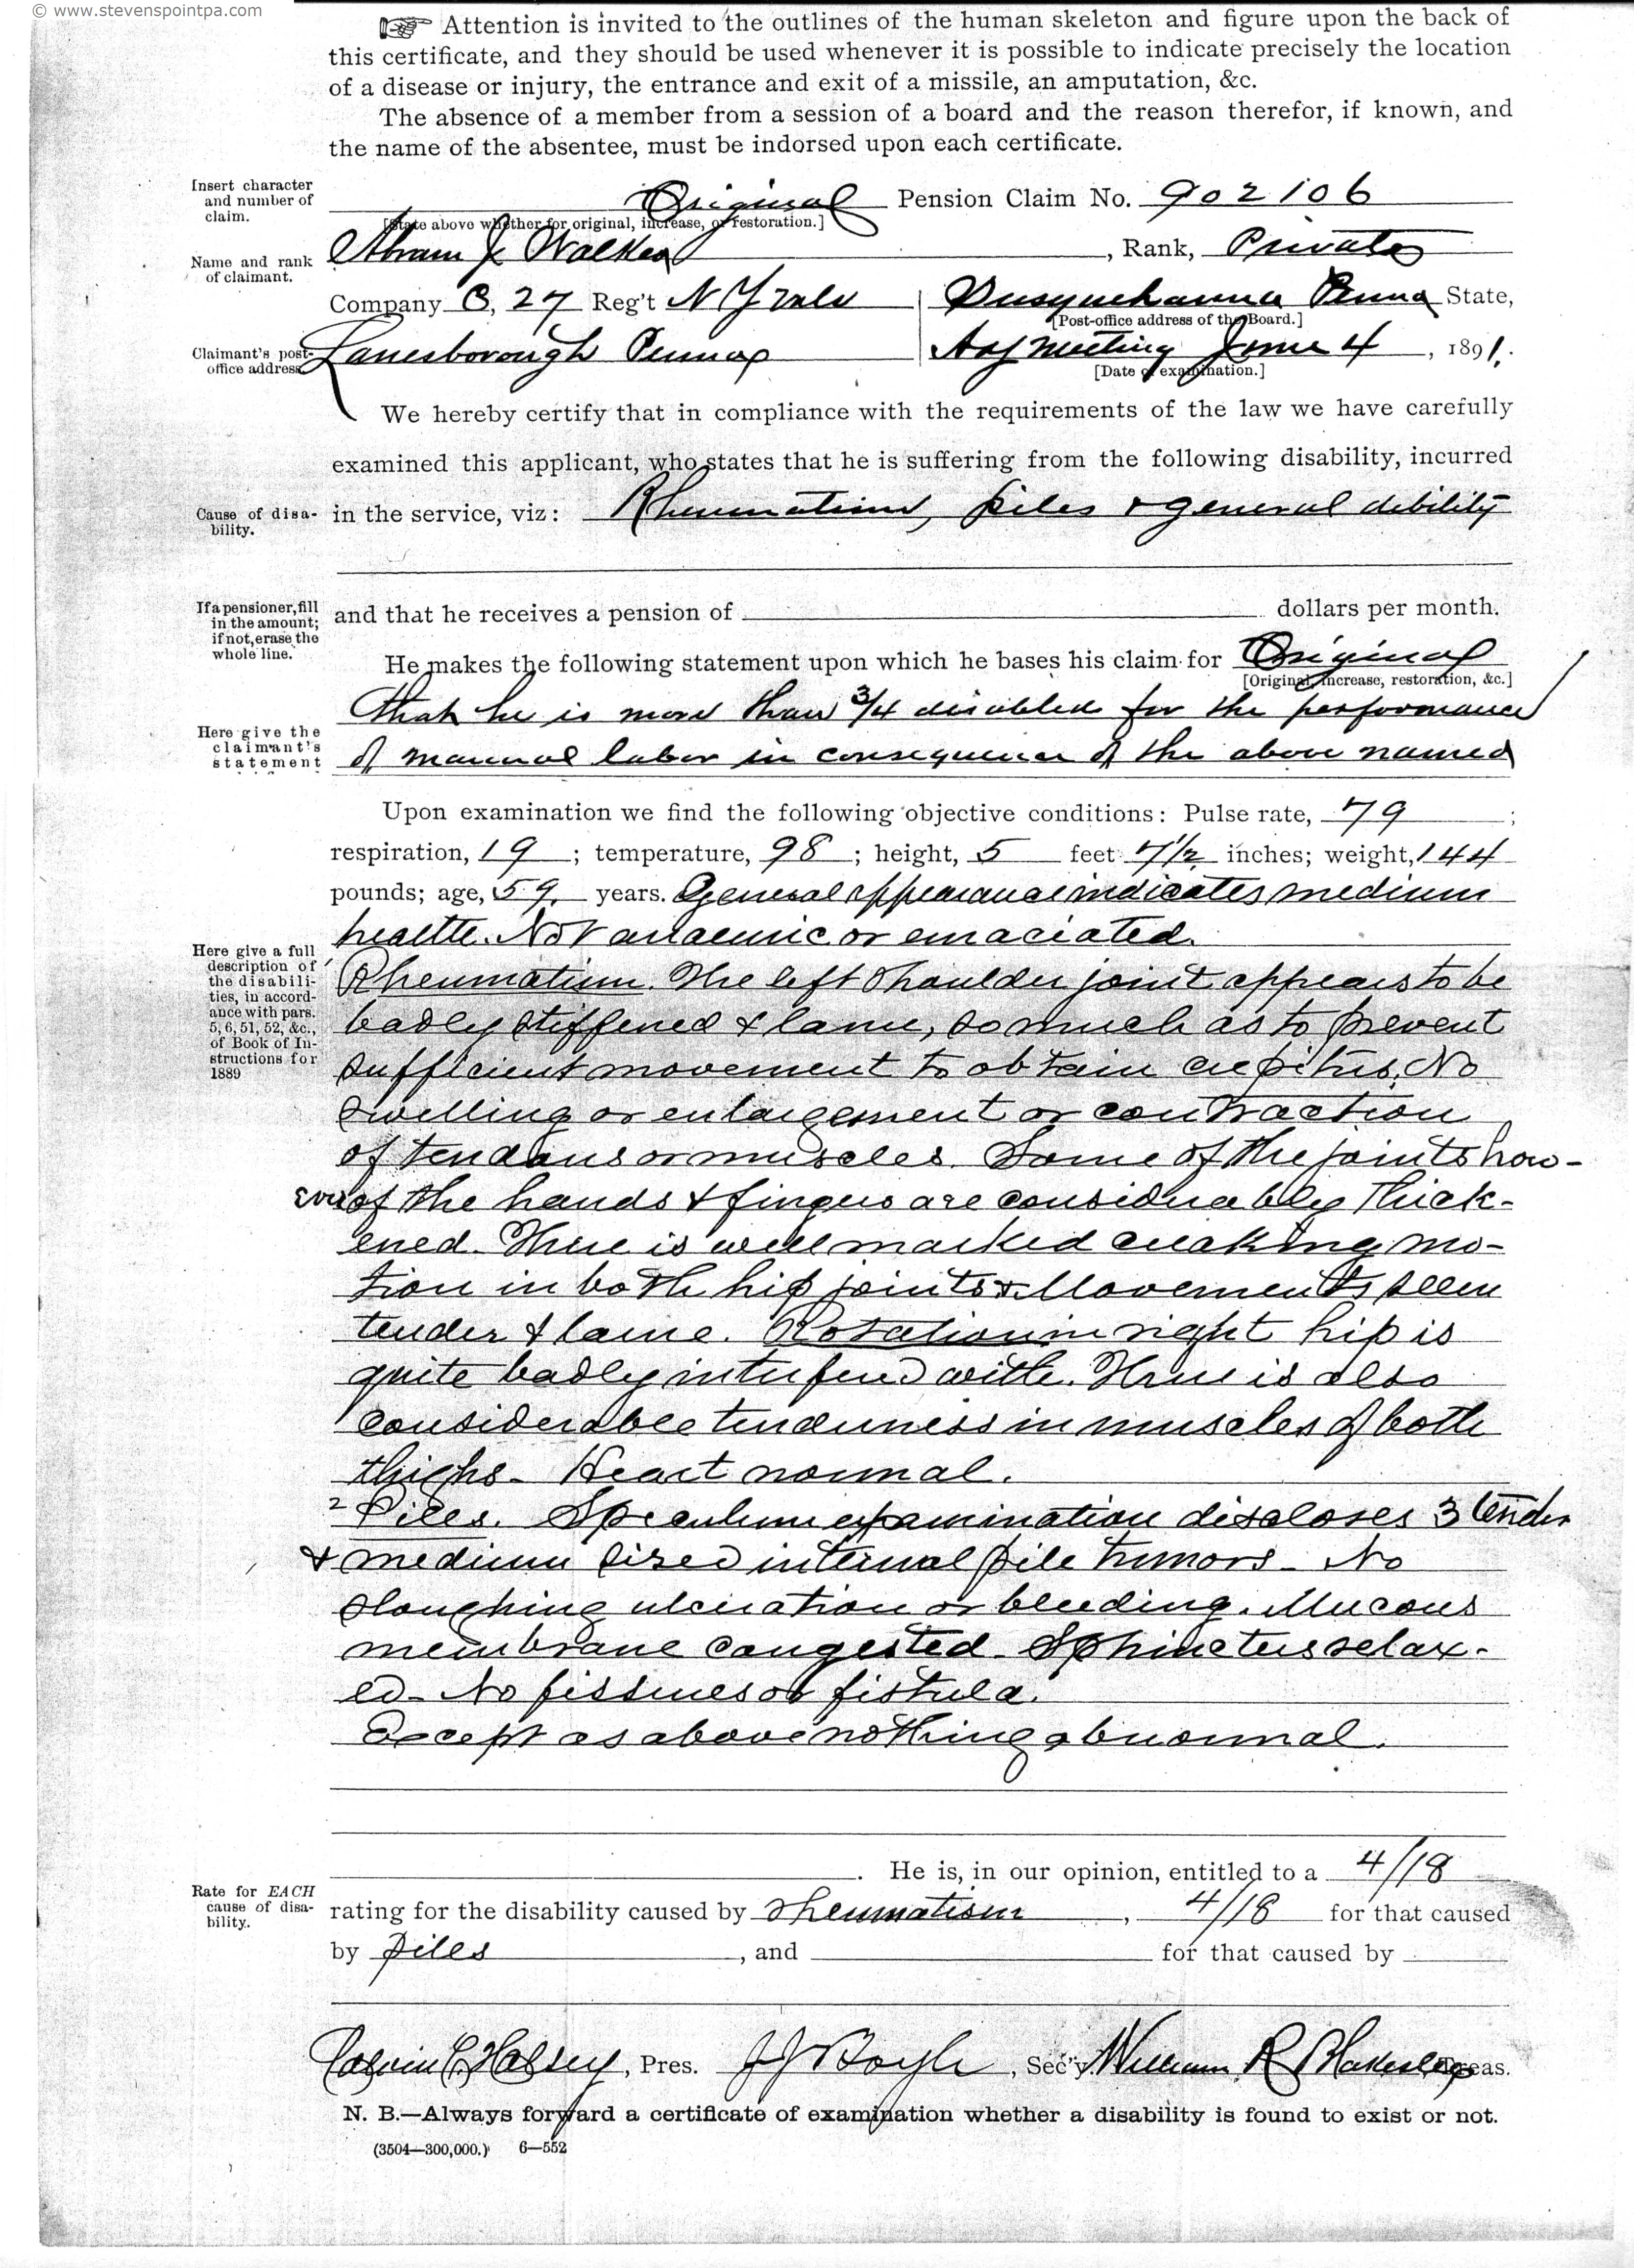 © www.stevenspointpa.com
☞ Attention is invited to the outlines of the human skeleton and figure upon the back of
this certificate, and they should be used whenever it is possible to indicate precisely the location
of a disease or injury, the entrance and exit of a missile, an amputation, &c.
The absence of a member from a session of a board and the reason therefor, if known, and
the name of the absentee, must be indorsed upon each certificate.
Insert character
and number of
claim.
Original Pension Claim No. 902106
[State above whether for original, increase, or restoration.]
Name and rank
of claimant.
Abram J Walker, Rank, Private
Company C, 27 Reg't N Y Vols | Susquehanna Penna State,
[Post-office address of the Board.]
Claimant's post-
office address
Lanesborough Penna | Adj Meeting June 4, 1891.
[Date of examination.]
We hereby certify that in compliance with the requirements of the law we have carefully
examined this applicant, who states that he is suffering from the following disability, incurred
Cause of disa-
bility.
in the service, viz: Rheumatism, piles & general debility
If a pensioner, fill
in the amount;
if not, erase the
whole line.
and that he receives a pension of dollars per month.
He makes the following statement upon which he bases his claim for Original
[Original, increase, restoration, &c.]
Here give the
claimant's
statement
that he is more than 3/4 disabled for the performance
of manual labor in consequence of the above named
Upon examination we find the following objective conditions: Pulse rate, 79;
respiration, 19; temperature, 98; height, 5 feet 7 1/2 inches; weight, 144
pounds; age, 59. years. General appearance indicates medium
health. Not anaemic or emaciated.
Here give a full
description of
the disabili-
ties, in accord-
ance with pars.
5, 6, 51, 52, &c.,
of Book of In-
structions for
1889
Rheumatism. The left shoulder joint appears to be
badly stiffened & lame, so much as to prevent
sufficient movement to obtain crepitus. No
swelling or enlargement or contraction
of tendons or muscles. Some of the joints how-
ever of the hands & fingers are considerably thick-
ened. There is well marked creaking mo-
tion in both hip joints & Movements seem
tender & lame. Rotation in right hip is
quite badly interfered with. There is also
considerable tenderness in muscles of both
thighs - Heart normal.
2 Piles. Speculum examination discloses 3 tender
& medium sized internal pile tumors - No
sloughing ulceration or bleeding. Mucous
membrane congested - Sphincters relax-
ed - No fissures or fistula.
Except as above nothing abnormal.
He is, in our opinion, entitled to a 4/18
Rate for EACH
cause of disa-
bility.
rating for the disability caused by rheumatism, 4/18 for that caused
by piles, and for that caused by
Calvin C Halsey, Pres. J J Boyle, Sec'y. William R Blakeslee, Treas.
N. B.—Always forward a certificate of examination whether a disability is found to exist or not.
(3504—300,000.) 6—552